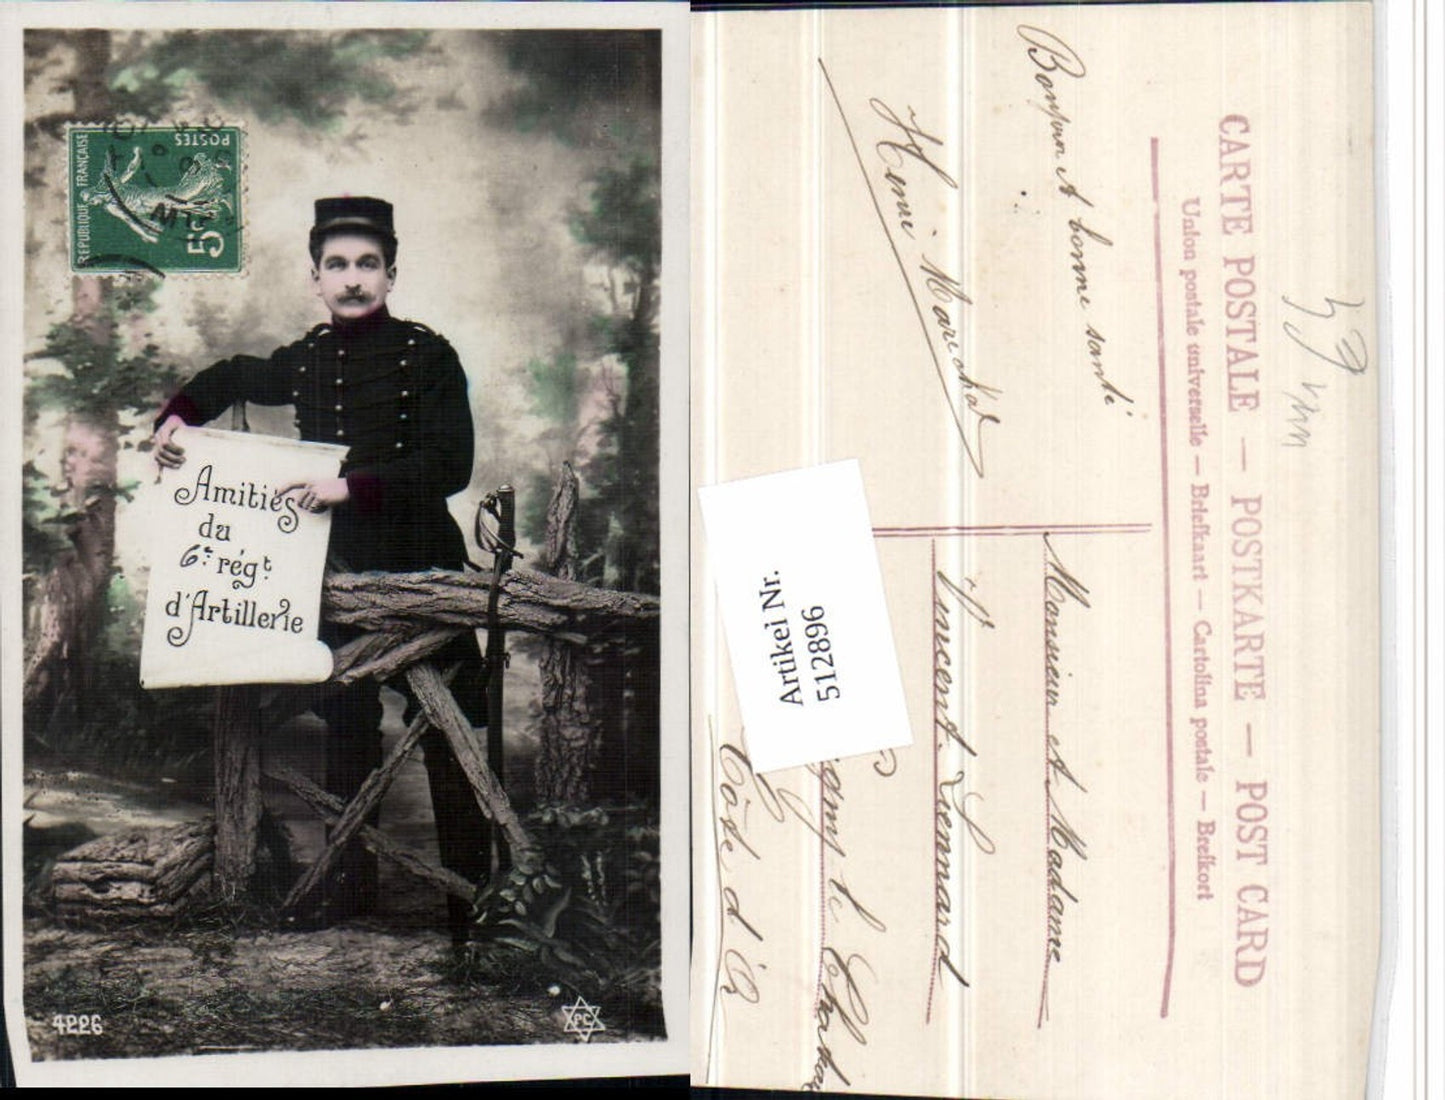 REPUBLIQUE FRANÇAISE
POSTES
5c
Amitiés
du
6e régt
d'Artillerie
4226
PC
CARTE POSTALE — POSTKARTE — POST CARD
Union postale universelle — Briefkaart — Cartolina postale — Brefkort
Bonjour A bonne santé
Henri Marechal
Monsieur et Madame
Vincent Liennard
le
Côte d'Or
Artikel Nr.
5128896